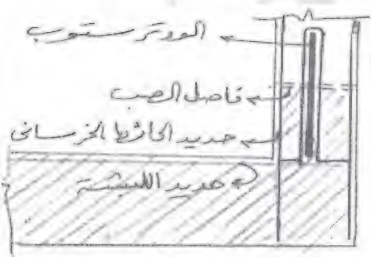 الووتر ستوب
فاصل الصب
حديد الحائط الخرسانى
حديد اللبشة